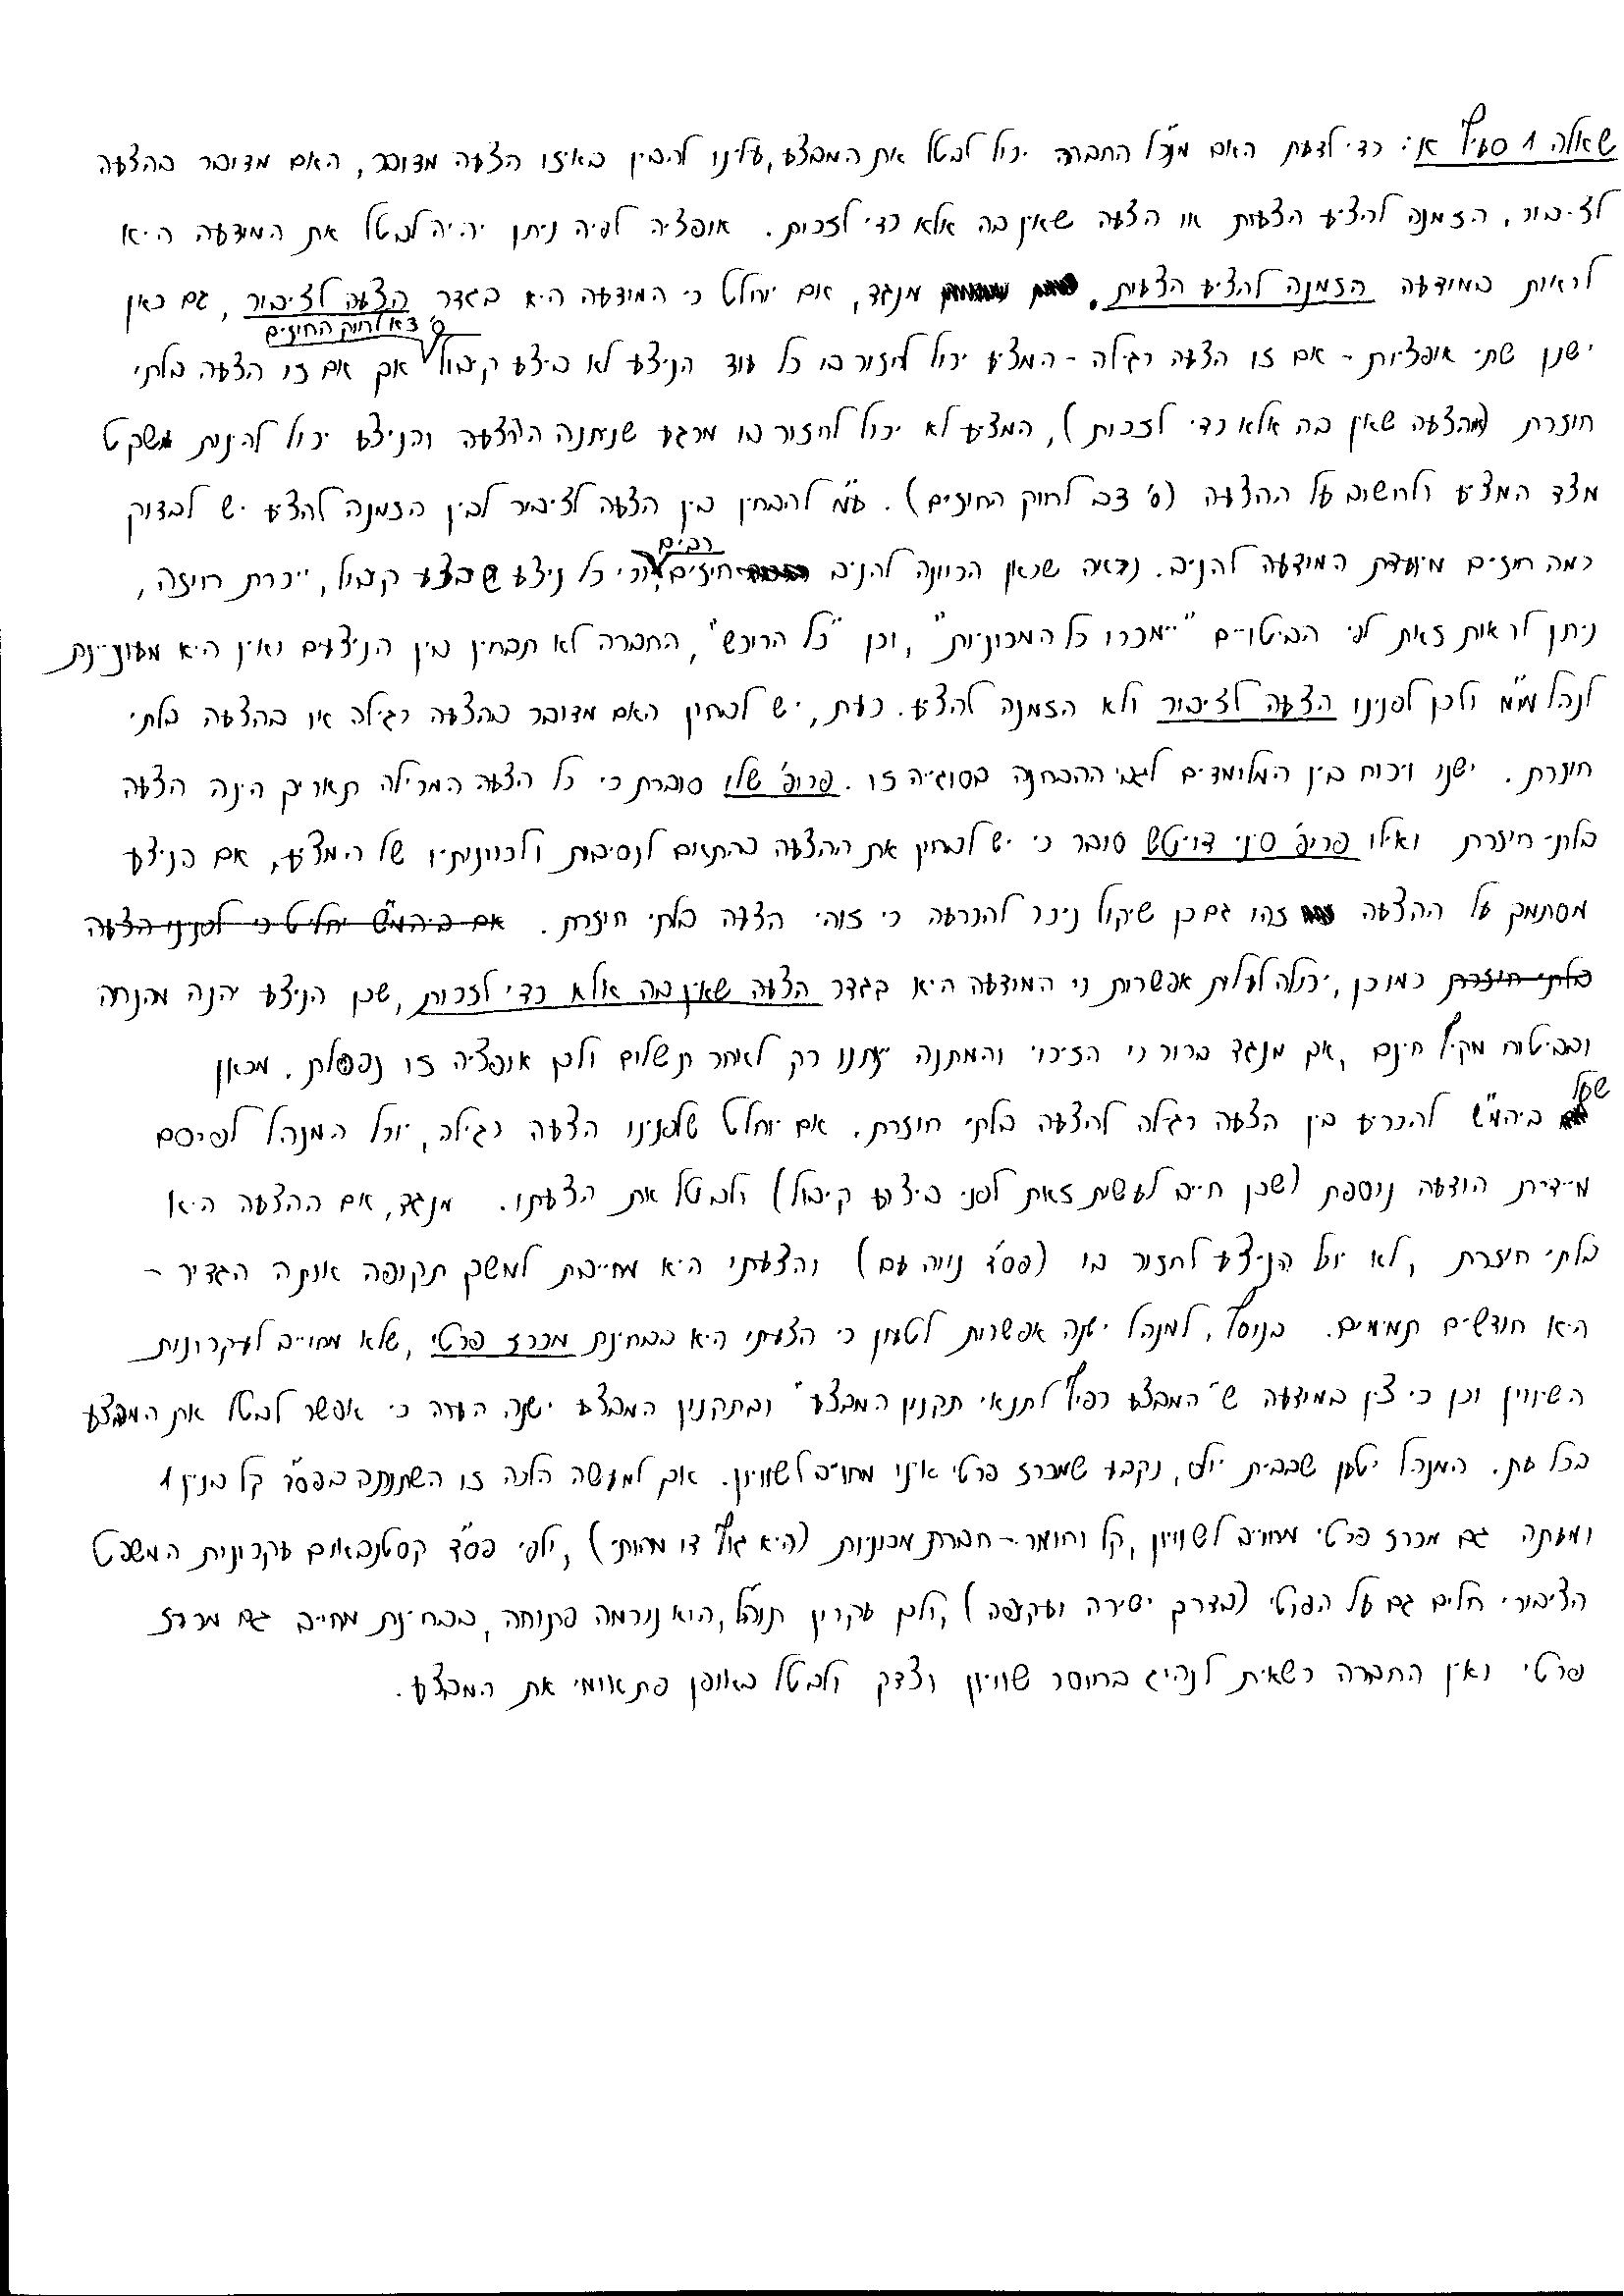 שאלה 1 סעיף א': כדי לדעת האם מנכ"ל החברה יכול לבטל את המבצע, עלינו להבין באיזו הצעה מדובר, האם מדובר בהצעה
לציבור, הזמנה להציע הצעות או הצעה שאין בה אלא כדי לזכות. אופציה לפיה ניתן יהיה לבטל את המודעה היא
לראות במודעה הזמנה להציע הצעות. מנגד, אם יוחלט כי המודעה היא בגדר הצעה לציבור, גם כאן
ס' 3א לחוק החוזים
ישנן שתי אופציות - אם זו הצעה רגילה - המציע יכול לחזור בו כל עוד הניצע לא ביצע קיבול אך אם זו הצעה בלתי
חוזרת (מהצעה שאין בה אלא כדי לזכות), המציע לא יכול לחזור בו מרגע שניתנה ההצעה והניצע יכול להינות משקט
מצד המציע ולחשוב על ההצעה (ס' 3ב לחוק החוזים). ע"מ להבחין בין הצעה לציבור לבין הזמנה להציע יש לבדוק
רבים
כמה חוזים מיועדת המודעה להניב. נראה שכאן הכוונה להניב חוזים וכי כל ניצע שבצע קיבול, ייכרת חוזה,
ניתן לראות זאת לפי הביטויים "יימכרו כל המכוניות", וכן "כל הרוכש", החברה לא תבחין בין הניצעים ואין היא מעוניינת
לנהל מו"מ ולכן לפנינו הצעה לציבור ולא הזמנה להציע. כעת, יש לבחון האם מדובר בהצעה רגילה או בהצעה בלתי
חוזרת. ישנו ויכוח בין המלומדים לגבי ההבחנה בסוגיה זו. פרופ' שלו סוברת כי כל הצעה המכילה תאריך הינה הצעה
בלתי חוזרת ואילו פרופ' סיני דויטש סובר כי יש לבחון את ההצעה בהתאם לנסיבות ולכוונותיו של המציע, אם הניצע
מסתמך על ההצעה זהו גם כן שיקול ניכר להכרעה כי זוהי הצעה בלתי חוזרת. אם ביהמ"ש יחליט כי לפנינו הצעה
בלתי חוזרת כמו כן, יכולה לעלות אפשרות כי המודעה היא בגדר הצעה שאין בה אלא כדי לזכות, שכן הניצע יהנה מהנחה
ובביטוח מקיף חינם, אך מנגד ברור כי הזיכוי והמתנה יינתנו רק לאחר תשלום ולכן אופציה זו נפסלת. מכאן
שעל
ביהמ"ש להכריע בין הצעה רגילה להצעה בלתי חוזרת. אם יוחלט שלפנינו הצעה רגילה, יוכל המנהל לפרסם
מיידית הודעה נוספת (שכן חייב לעשות זאת לפני ביצוע קיבול) ולבטל את הצעתו. מנגד, אם ההצעה היא
בלתי חוזרת, לא יוכל הניצע לחזור בו (פס"ד נווה עם) והצעתו היא מחייבת למשך תקופה אותה הגדיר -
היא חודשיים תמימים. בנוסף, למנהל ישנה אפשרות לטעון כי הצעתו היא בבחינת מכרז פרטי, שלא מחוייב לעקרונות
השיוויון וכן כי צוין במודעה ש"המבצע כפוף לתנאי תקנון המבצע" ובתקנון המבצע ישנה הערה כי אפשר לבטל את המבצע
בכל עת. המנהל יטען שבבית יולס, נקבע שמכרז פרטי אינו מחוייב לשוויון. אך למעשה הלכה זו השתנתה בפס"ד קל בנין 1
ומעתה גם מכרז פרטי מחוייב לשוויון, קל וחומר - חברת מכוניות (היא גוף דו מהותי), ולפי פס"ד קסטנבאום עקרונות המשפט
הציבורי חלים גם על הפרטי (בדרך ישירה ועקיפה), ולכן עקרון תוה"ל, הוא נורמה פתוחה, בבחינת מחייב גם מכרז
פרטי ואין החברה רשאית לנהוג בחוסר שוויון וצדק ולבטל באופן פתאומי את המבצע.